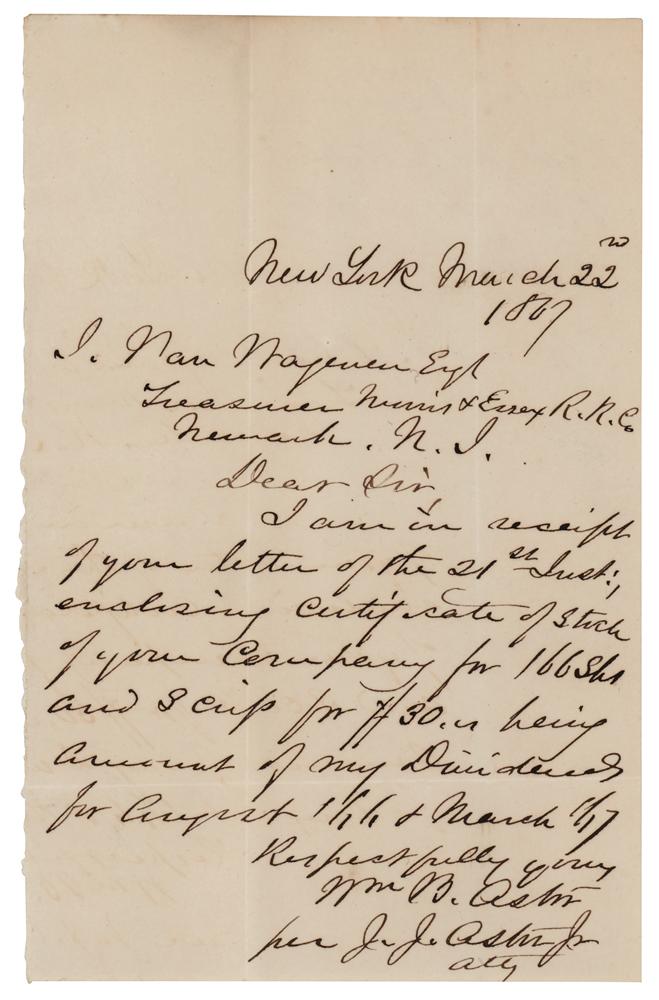 New York March 22nd
1867
I. Van Wagenen Esqr
Treasurer Morris & Essex R. R. Co
Newark. N. J.
Dear Sir,
I am in receipt
of your letter of the 21st Inst.,
enclosing Certificate of Stock
of your Company for 166 Shs
and Scrip for $30. being
amount of my Dividends
for August & March
Respectfully yours
Wm B. Astor
per J. J. Astor Jr
atty